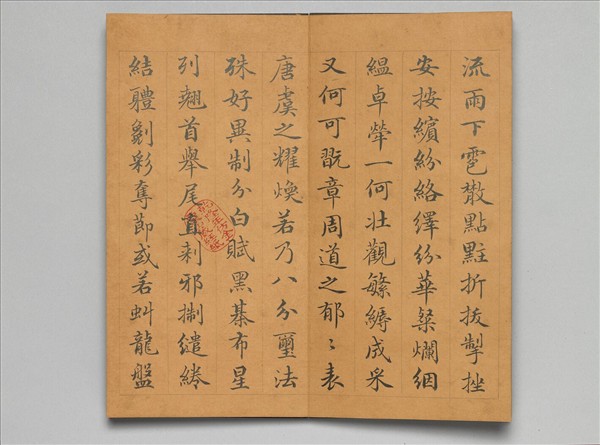 流雨下雹散點折拔掣挫
安按繽紛絡繹紛華粲爛絪
縕卓犖一何壯觀繁縟成采
又何可翫章周道之郁〻表
唐虞之耀煥若乃八分璽法
殊好異制分白賦黑棊布星
列翹首舉尾直刺邪繾綣
結體彩奪節或若虯龍盤